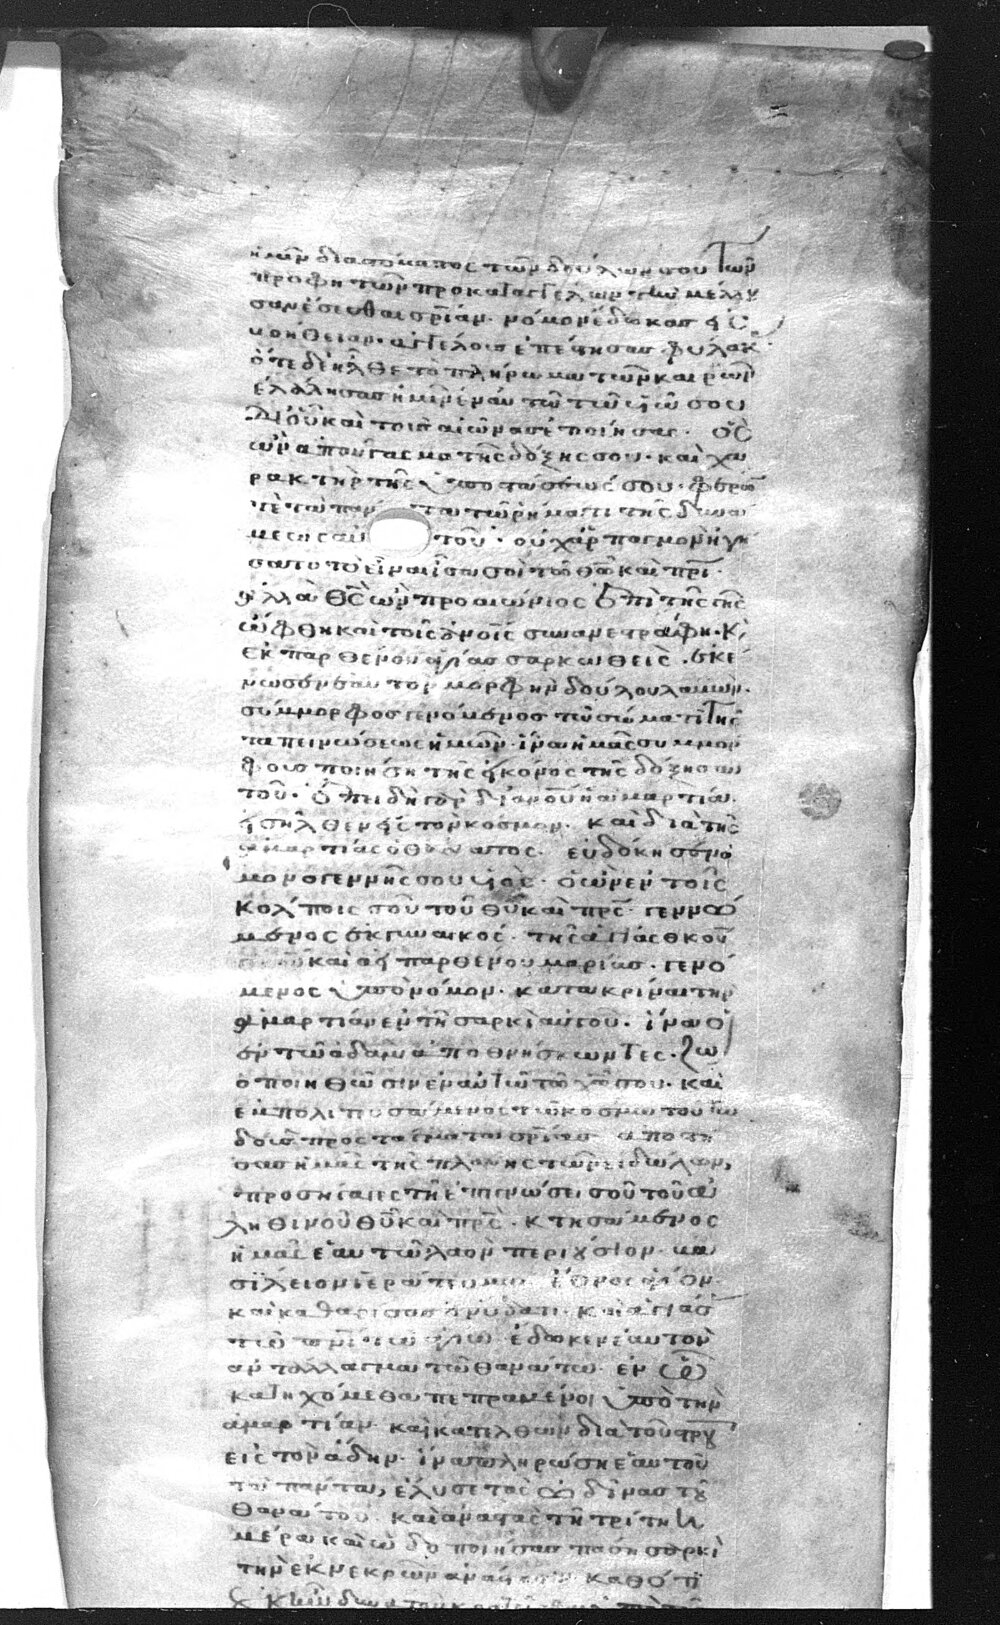 ἡμῶν διὰ στόματος τῶν δούλων σου τῶν
προφητῶν προκαταγγέλων τὴν μέλλου
σαν ἔσεσθαι σρίαν· νόμον ἔδωκας εἰς
βοήθειαν· ἀγγέλους ἐπέστησας φύλακ
ὅτε δὲ ἦλθε τὸ πλήρωμα τῶν καιρῶν
ἐλάλησας ἡμῖν ἐν αὐτῶ τῶ υἱῶ σου
δι οὗ καὶ τοὺς αἰῶνας ἐποίησας· ὃς
ὢν ἀπαύγασμα τῆς δόξης σου· καὶ χα
ρακτὴρ τῆς ὑποστάσεώς σου· φέρων
τε τὰ πάν τα τῶ ῥήματι τῆς δυνά
μεως αὐ τοῦ· οὐχ ἁρπαγμὸν ἡγή
σατο τὸ εἶναι ἴσα σοὶ τῶ θῶ καὶ πρί·
ἀλλὰ θς ὢν προαιώνιος ἐπὶ τῆς γῆς
ὤφθη καὶ τοῖς ἀνοις συνανεστράφη· κ
ἐκ παρθένου ἁγίας σαρκωθεὶς· ἐκέ
νωσεν ἑαυτὸν μορφὴν δούλου λαβών·
σύμμορφος γενόμενος τῶ σώματι τῆς
ταπεινώσεως ἡμῶν· ἵνα ἡμᾶς συμμόρ
φους ποιήση τῆς εἰκόνος τῆς δόξης αὐ
τοῦ· ἐπειδὴ γὰρ δι ἀνου ἡ ἁμαρτία
εἰσῆλθεν εἰς τὸν κόσμον· καὶ διὰ τῆς
ἁμαρτίας ὁ θάνατος· εὐδόκησεν ὁ
μονογεννής σου υἱὸς· ὁ ὢν ἐν τοῖς
κόλποις σοῦ τοῦ θυ καὶ πρς· γεννώ
μενος ἐκ γυναικός· τῆς ἁγίας θκου
καὶ ἀει παρθένου μαρίας· γενό
μενος ὑπὸ νόμον· κατακρίναι τὴν
ἁμαρτίαν ἐν τῆ σαρκὶ αὐτοῦ· ἵνα οἱ
ἐν τῶ ἀδὰμ ἀποθνήσκωντες· ζω
οποιηθῶσιν ἐν αὐτῶ τῶ χω σου· καὶ
ἐμπολιτευσάμενος τῶ κόσμω τούτω
δοὺς προστάγματα σρίας ἀποστή
σας ἡμᾶς τῆς πλάνης τῶν εἰδώλων,
προσήγαγες τῆ ἐπιγνώσει σοῦ τοῦ ἀ
ληθινοῦ θυ καὶ πρς· κτησάμενος
ἡμᾶς ἑαυτῶ λαὸν περιούσιον· βα
σίλειον ἱεράτευμα ἔθνος ἅγιον·
καὶ καθαρίσας ἐν ὕδατι· καὶ ἁγιάσ
τῶ πνι τῶ ἁγίω ἔδωκεν ἑαυτὸν
ἀντάλλαγμα τῶ θανάτω· ἐν ὧ
κατηχόμεθα πεπραμένοι ὑπὸ τὴν
ἁμαρτίαν· καὶ κατελθὼν διὰ τοῦ στρου
εἰς τὸν ἅδην· ἵνα πληρώση ἑαυτοῦ
τὰ πάντα, ἔλυσε τὰς ὠδίνας τοῦ
θανάτου· καὶ ἀναστὰς τῆ τρίτη ἡ
μέρα καὶ ὁδοποιήσας πάση σαρκὶ
τὴν ἐκ νεκρῶν ἀνάστασιν καθότι